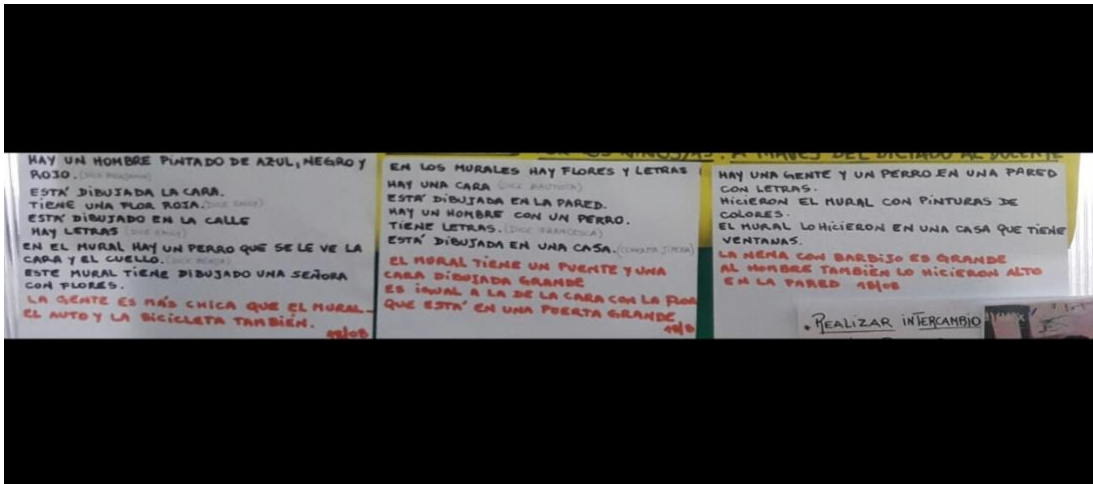 HAY UN HOMBRE PINTADO DE AZUL, NEGRO Y
ROJO.
ESTA' DIBUJADA LA CARA.
TIENE UNA FLOR ROJA. (DICE EMILY)
ESTA' DIBUJADO EN LA CALLE
HAY LETRAS (DICE EMILY)
EN EL MURAL HAY UN PERRO QUE SE LE VE LA
CARA Y EL CUELLO.
ESTE MURAL TIENE DIBUJADO UNA SEÑORA
CON FLORES.
LA GENTE ES MÁS CHICA QUE EL MURAL.
EL AUTO Y LA BICICLETA TAMBIÉN.
18/08
POR LOS NIÑOS/AS, A TRAVÉS DEL DICTADO AL DOCENTE
EN LOS MURALES HAY FLORES Y LETRAS
HAY UNA CARA (DICE BAUTISTA)
ESTA' DIBUJADA EN LA PARED.
HAY UN HOMBRE CON UN PERRO.
TIENE LETRAS. (DICE FRANCESCA)
ESTA' DIBUJADA EN UNA CASA.
EL MURAL TIENE UN PUENTE Y UNA
CARA DIBUJADA GRANDE
ES IGUAL A LA DE LA CARA CON LA FLOR
QUE ESTA' EN UNA PUERTA GRANDE
18/8
HAY UNA GENTE Y UN PERRO EN UNA PARED
CON LETRAS.
HICIERON EL MURAL CON PINTURAS DE
COLORES.
EL MURAL LO HICIERON EN UNA CASA QUE TIENE
VENTANAS.
LA NENA CON BARBIJO ES GRANDE
AL HOMBRE TAMBIÉN LO HICIERON ALTO
EN LA PARED 18/08
. REALIZAR INTERCAMBIO